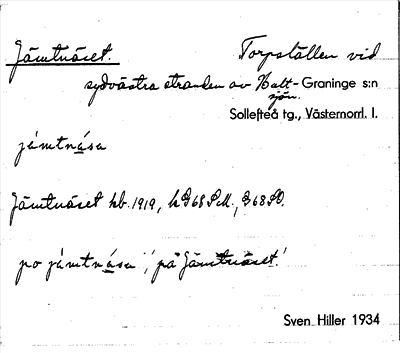 Jämtnäset. Torpställen vid
sydvästra stranden av Halt- Graninge s:n
sjön.
Sollefteå tg., Västernorrl. l.
jámtnása
Jämtnäset hb. 1919,
po jámtnása, 'på Jämtnäset.'
Sven Hiller 1934